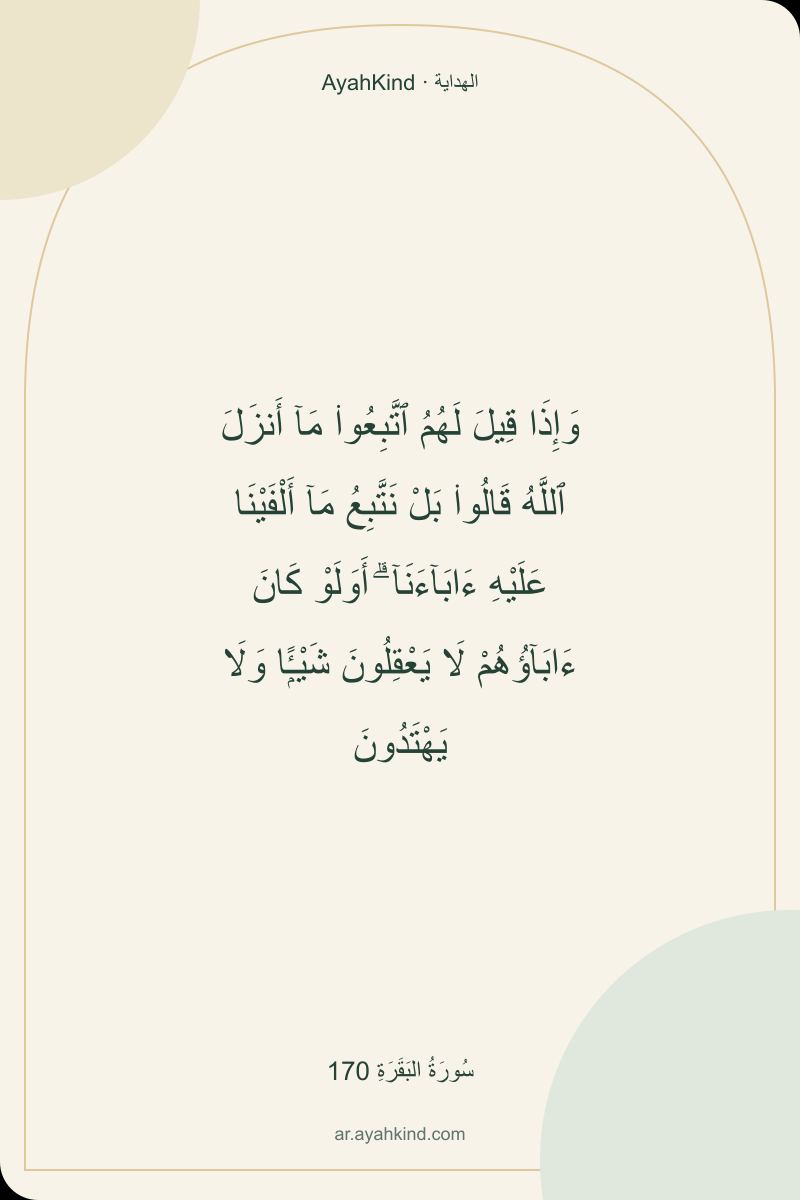 AyahKind · الهداية
وَإِذَا قِيلَ لَهُمُ ٱتَّبِعُوا۟ مَآ أَنزَلَ
ٱللَّهُ قَالُوا۟ بَلْ نَتَّبِعُ مَآ أَلْفَيْنَا
عَلَيْهِ ءَابَآءَنَآ ۗ أَوَلَوْ كَانَ
ءَابَآؤُهُمْ لَا يَعْقِلُونَ شَيْـًۭٔا وَلَا
يَهْتَدُونَ
سُورَةُ البَقَرَةِ 170
ar.ayahkind.com